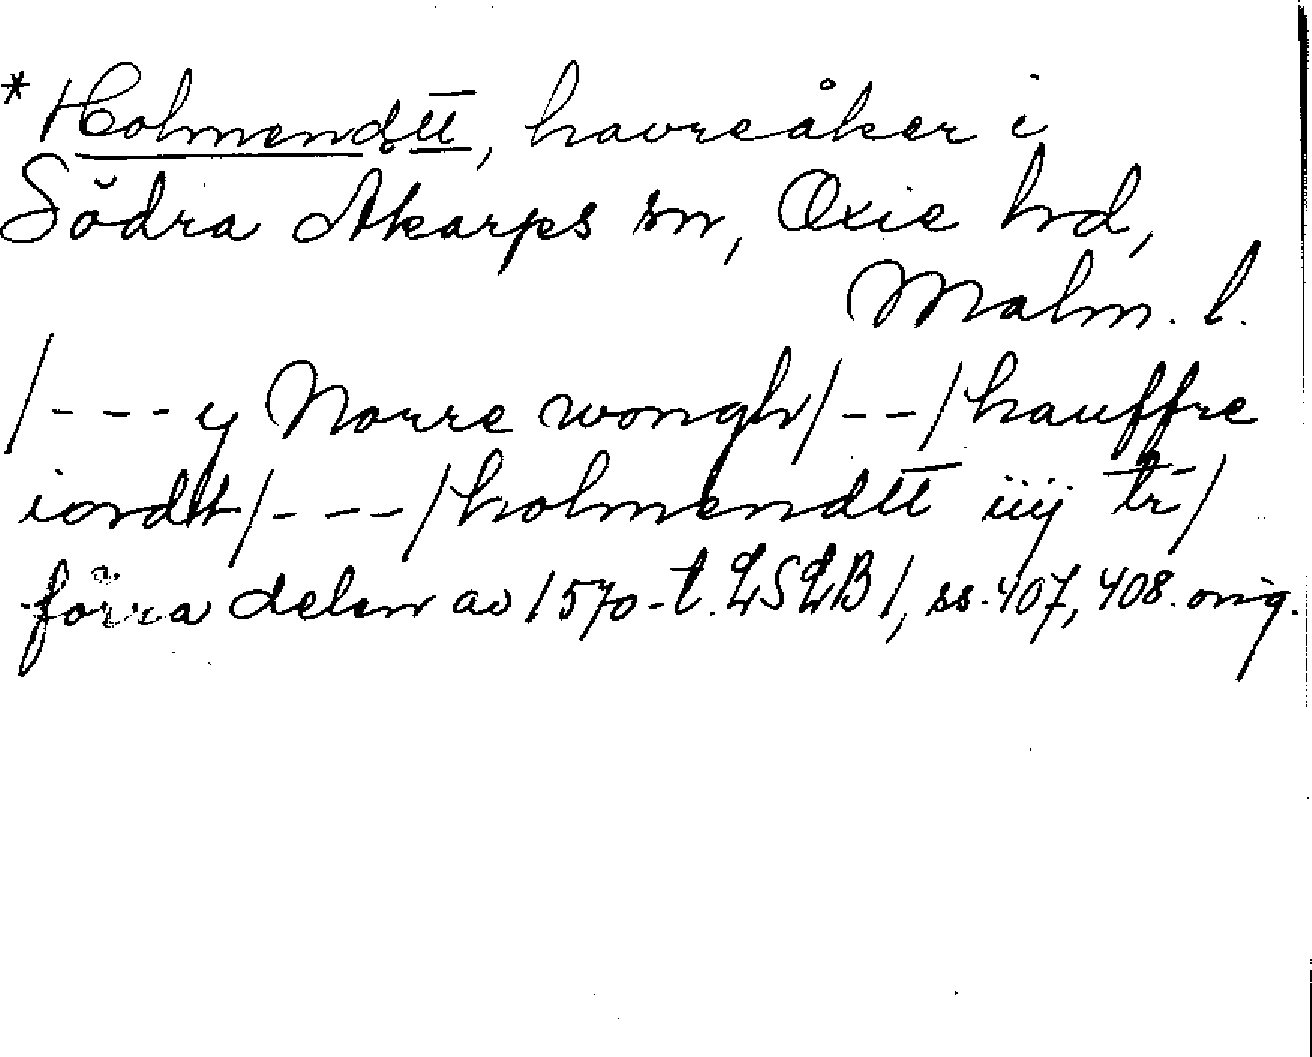 * Holmendtt̅, havreåker i
Södra Åkarps sn, Oxie hd,
Malm. l.
/---y Norre wongh/--/hauffre
iordt/---/holmendtt̅ iiij tr̅/
förra delen av 1570-t. LSLB 1, ss. 407, 408. orig.